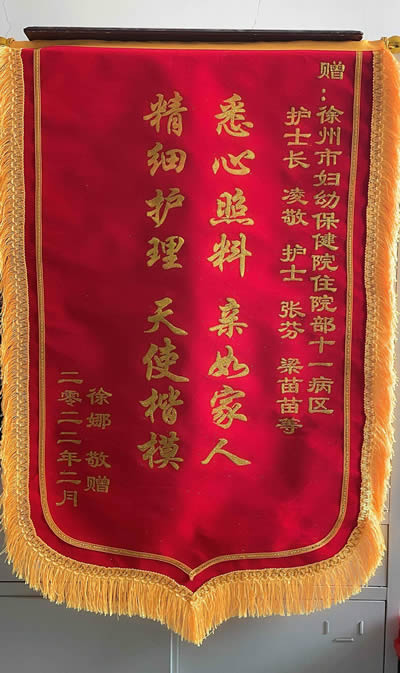 赠：徐州市妇幼保健院住院部十一病区
护士长 凌敬 护士 张芬 梁苗苗等
悉心照料 亲如家人
精细护理 天使楷模
徐娜 敬赠
二零二二年二月